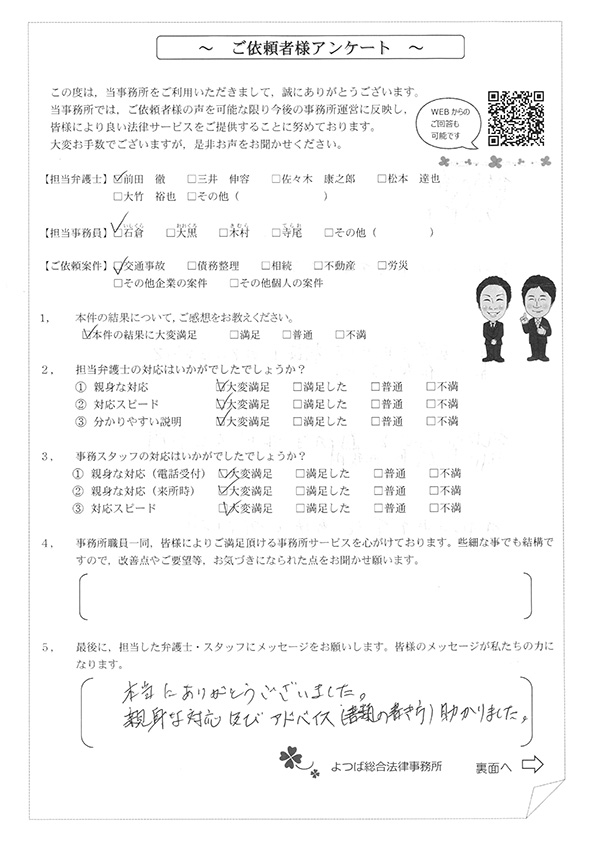 ～ ご依頼者様アンケート ～
この度は，当事務所をご利用いただきまして，誠にありがとうございます。
当事務所では，ご依頼者様の声を可能な限り今後の事務所運営に反映し，
皆様により良い法律サービスをご提供することに努めております。
大変お手数でございますが，是非お声をお聞かせください。
WEBからの
ご回答も
可能です
【担当弁護士】 ☑前田 徹 □三井 伸容 □佐々木 康之郎 □松本 達也
□大竹 裕也 □その他（ ）
いしくら おおぐろ きむら てらお
【担当事務員】 ☑石倉 □大黒 □木村 □寺尾 □その他（ ）
【ご依頼案件】 ☑交通事故 □債務整理 □相続 □不動産 □労災
□その他企業の案件 □その他個人の案件
1， 本件の結果について，ご感想をお教えください。
☑本件の結果に大変満足 □満足 □普通 □不満
2． 担当弁護士の対応はいかがでしたでしょうか？
① 親身な対応 ☑大変満足 □満足した □普通 □不満
② 対応スピード ☑大変満足 □満足した □普通 □不満
③ 分かりやすい説明 ☑大変満足 □満足した □普通 □不満
3， 事務スタッフの対応はいかがでしたでしょうか？
① 親身な対応（電話受付） ☑大変満足 □満足した □普通 □不満
② 親身な対応（来所時） ☑大変満足 □満足した □普通 □不満
③ 対応スピード ☑大変満足 □満足した □普通 □不満
4． 事務所職員一同，皆様によりご満足頂ける事務所サービスを心がけております。些細な事でも結構で
すので，改善点やご要望等，お気づきになられた点をお聞かせ願います。
5． 最後に，担当した弁護士・スタッフにメッセージをお願いします。皆様のメッセージが私たちの力に
なります。
本当にありがとうございました。
親身な対応及びアドバイス（書類の書き方）助かりました。
よつば総合法律事務所
裏面へ